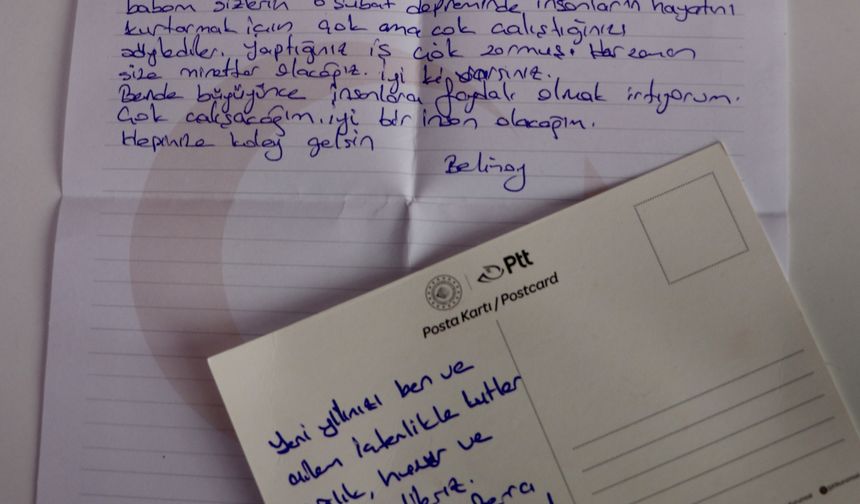 babam sizlerin 6 Şubat depreminde insanların hayatını
kurtarmak için çok ama çok çalıştığınızı
söylediler. Yaptığınız iş çok zormuş. Her zaman
size minettar olacağız. iyi ki varsınız.
Bende büyüyünce insanlara faydalı olmak istiyorum.
Çok çalışacağım. iyi bir insan olacağım.
Hepinize kolay gelsin
Belinay
Ptt
Posta Kartı / Postcard
Yeni yılınızı ben ve
ailem içtenlikle kutlar
huzur ve